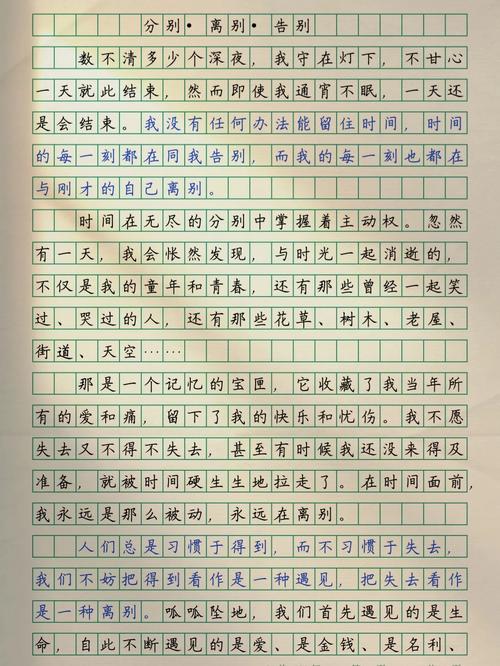 分别·离别·告别
数不清多少个深夜，我守在灯下，不甘心
一天就此结束，然而即使我通宵不眠，一天还
是会结束。我没有任何办法能留住时间，时间
的每一刻都在同我告别，而我的每一刻也都在
与刚才的自己离别。
时间在无尽的分别中掌握着主动权。忽然
有一天，我会怅然发现，与时光一起消逝的，
不仅是我的童年和青春，还有那些曾经一起笑
过、哭过的人，还有那些花草、树木、老屋、
街道、天空……
那是一个记忆的宝匣，它收藏了我当年所
有的爱和痛，留下了我的快乐和忧伤。我不愿
失去又不得不失去，甚至有时候我还没来得及
准备，就被时间硬生生地拉走了。在时间面前，
我永远是那么被动，永远在离别。
人们总是习惯于得到，而不习惯于失去，
我们不妨把得到看作是一种遇见，把失去看作
是一种离别。呱呱坠地，我们首先遇见的是生
命，自此不断遇见的是爱、是金钱、是名利、